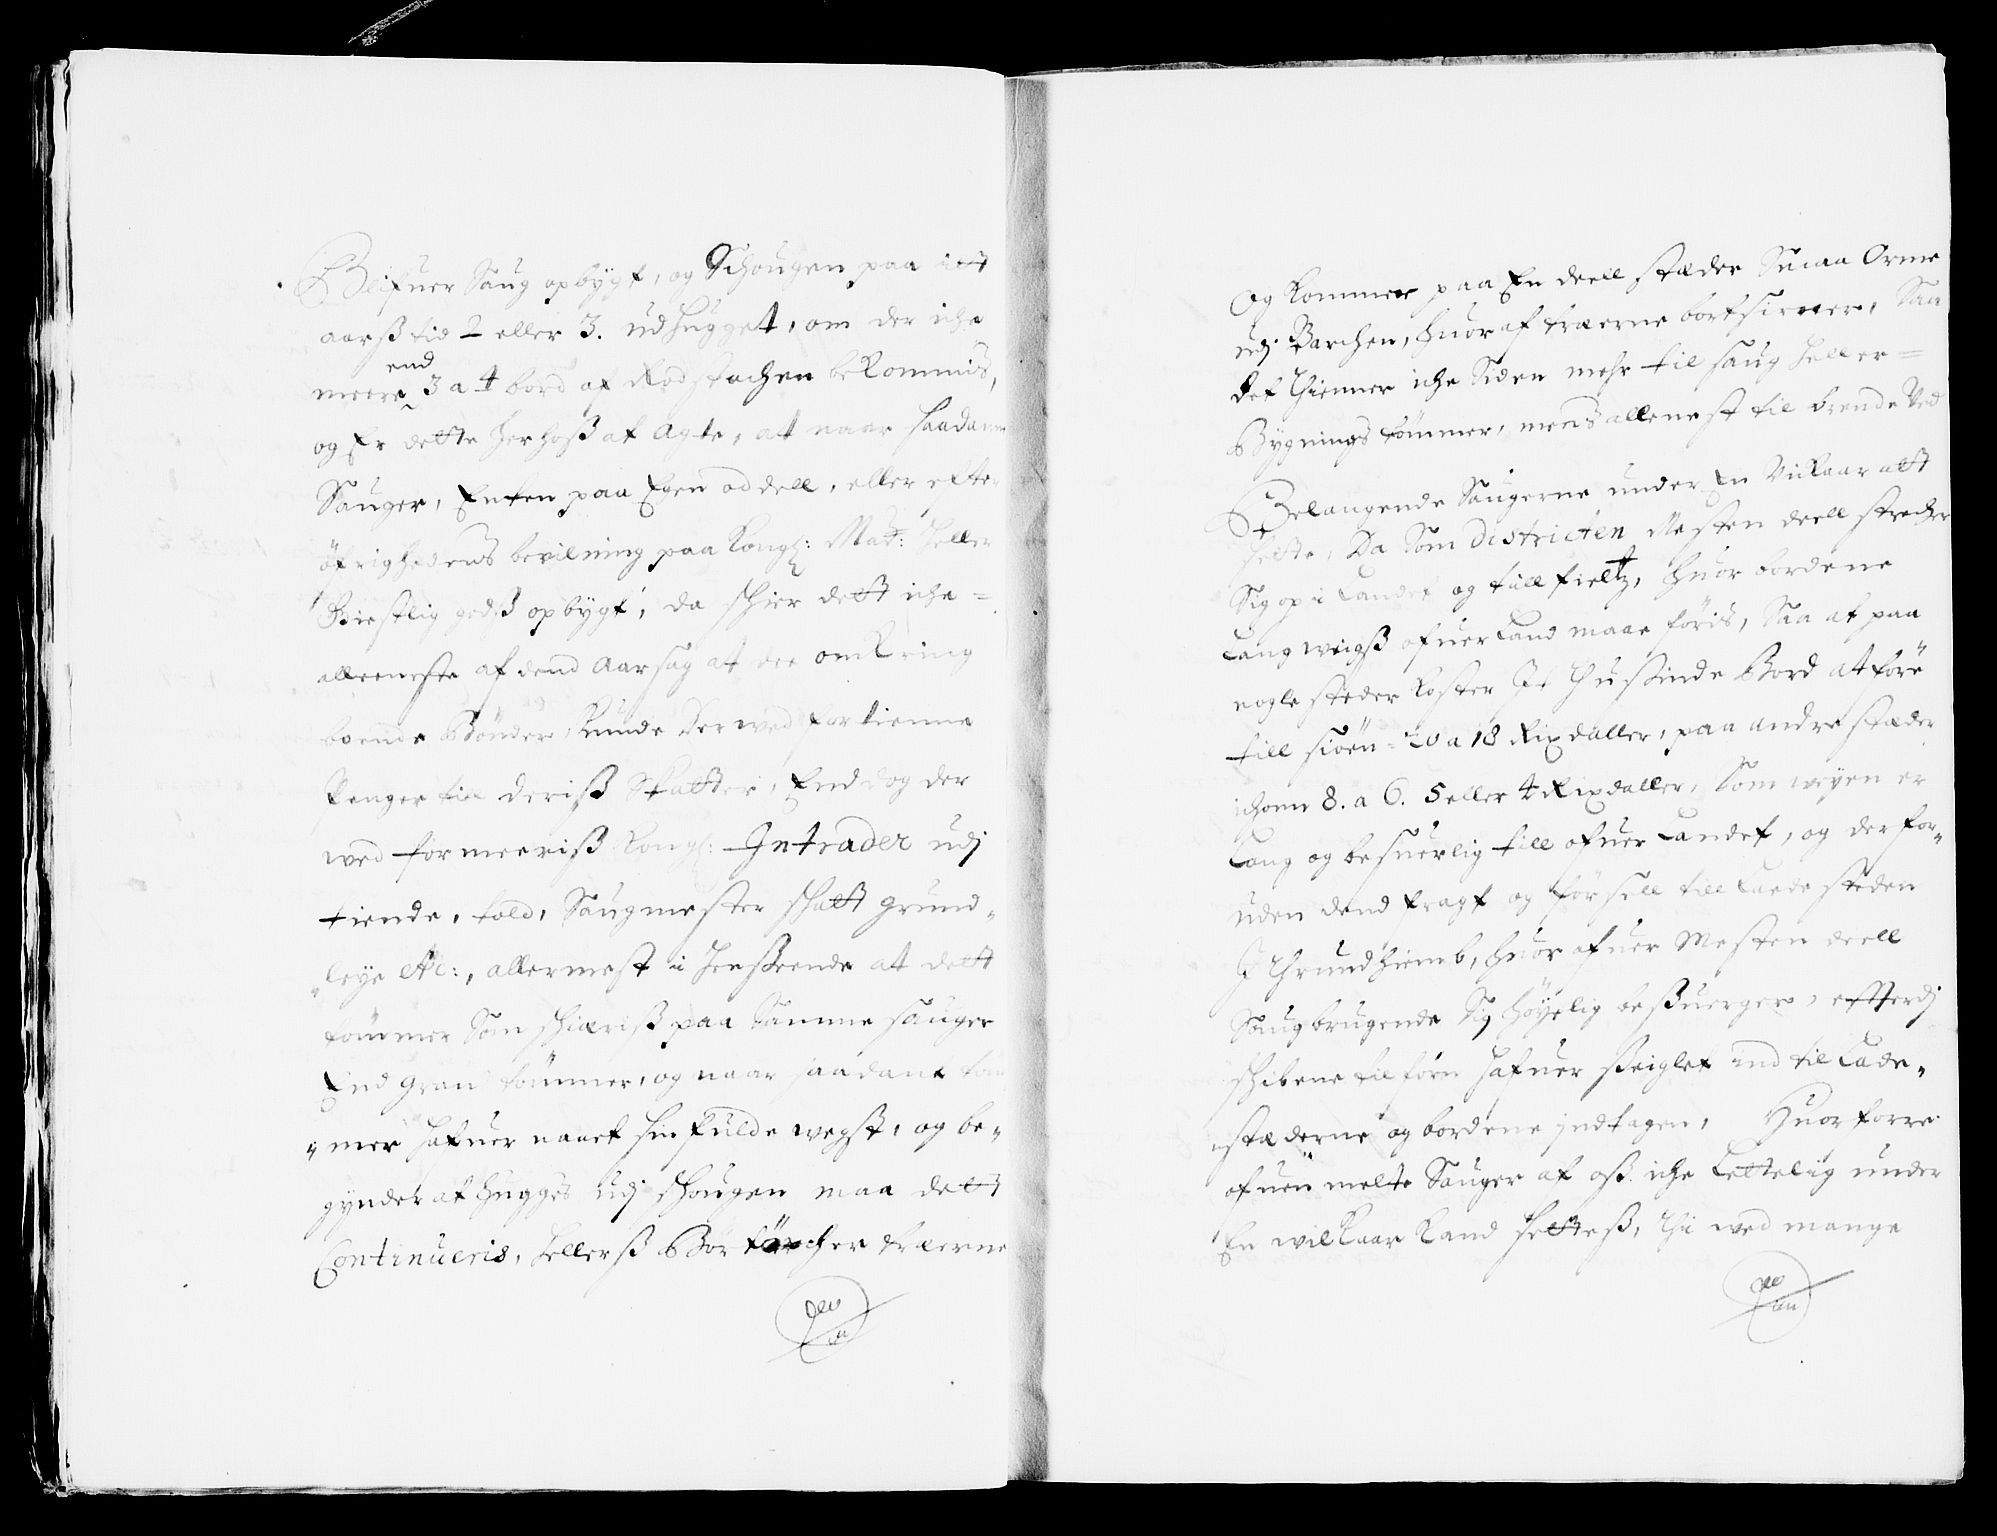 Blifuer Saug opbygt, og Schougen paa itt
aarß tid 2 eller 3. udhugget, om der iche
meere end 3 a 4 bord af Rodstochen bekommis,
og Er dette herhoß at Agte, at naar saadanne
Sauger, Enten paa Egen oddell, eller efter
öfrighedens bevilning paa Kongl: Maÿ: heller
Giestlig godß opbygt, da schier dett iche =
alleeneste af dend Aarsag at der omkring
boende Bönder, Kunde der ved fortienne
Penger till deriß Skatter, End dog der
wed formeeriß Kongl: Intrader udj
tiende, told, Saugmester schatt grund„
„leye etc:, allermest i henseende at dett
tömmer Som schiæriß paa Samme sauger
End gran tömmer, og naar saadant töm
„mer hafuer naaet sin fulde wegst, og be„
gynder at hugges udj schougen maa dett
Continueris, hellerß Bortörcher træerne
Og Kommer paa En deell stæder Smaa Orme
udj Barchen, huor af træerne bortsirer, Saa
det thienner iche Siden mehr til saug heller =
Bygnings tömmer, mens allenest til brende Ved
Belangende Saugerne under En Vilkaar att
sette, Da Som Districten Mesten deell strecher
Sig op i Landet og till fieltz, huor bordene
Lang weigß ofuer Land maae föris, Saa at paa
nogle steder koster It thusinde Bord at före
till siöen = 20 a 18 Rixdaller, paa andre stæder
ichon 8. a 6. 5 eller 4 Rixdaller, Som weyen er
Lang og besuerlig till ofuer Landet, og der for„
uden dend fragt og försell till Lade steden
I Thrundhiemb, huor ofuer Mesten deell
Saugbrugende Sig höyelig besuerger, efterdj
schibene tilforn hafuer seiglet ind til Lade„
„stæderne og bordene jndtagen, Huorforre
ofuen melte Sauger af oß iche Lettelig under
En wilkaar kand setteß, thi wed mange